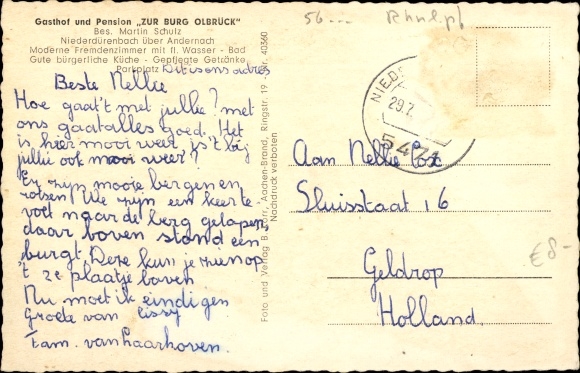 Gasthof und Pension „ZUR BURG OLBRÜCK"
Bes. Martin Schulz
Niederdürenbach über Andernach
Moderne Fremdenzimmer mit fl. Wasser - Bad
Gute bürgerliche Küche - Gepflegte Getränke
Parkplatz Dit is ons adres
Beste Nellie
Hoe gaat't met jullie? met
ons gaat alles goed. Het
is hier mooi weer, is 't bij
jullie ook mooi weer?
Er zijn mooie bergen en
rotsen! We zijn een keer te
voet naar de berg gelopen,
daar boven stond een
burgt. Deze kun je zien op
't 2e plaatje boven
Nu moet ik eindigen
Groete van Cissy
Fam. van Laarhoven.
Foto und Verlag B. Aachen-Brand, Ringstr. 19 Nr. 40360
Nachdruck verboten
56... Rhnl.pf
NIED
29.7.
5471
Aan Nellie Cox
Sluisstaat 16
Geldrop
Holland
€8-